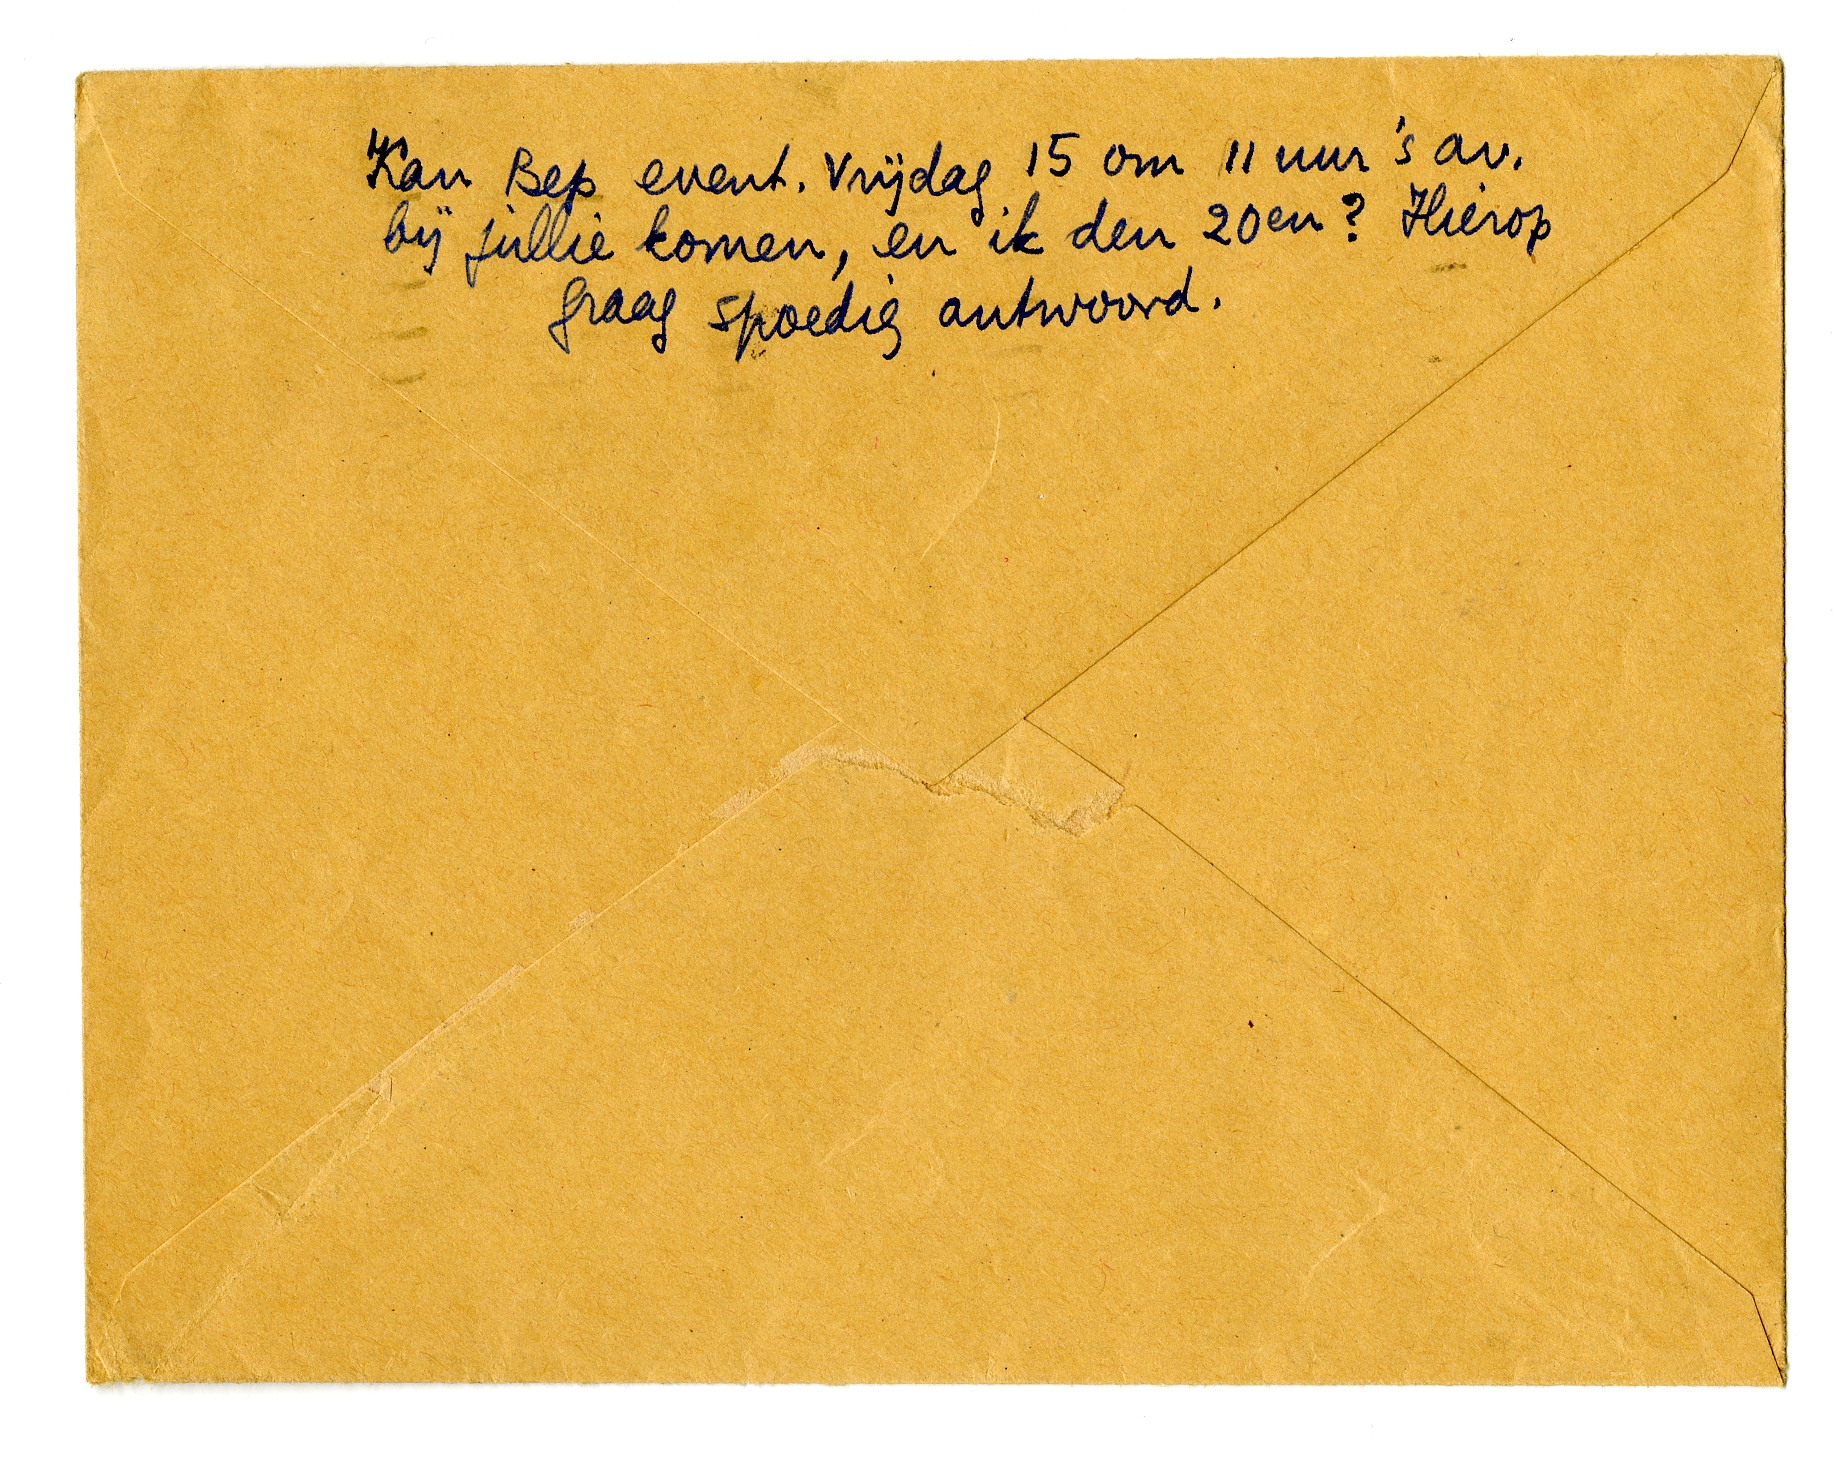 Kan Bep event. Vrijdag 15 om 11 uur 's av.
bij jullie komen, en ik den 20en? Hierop
graag spoedig antwoord.